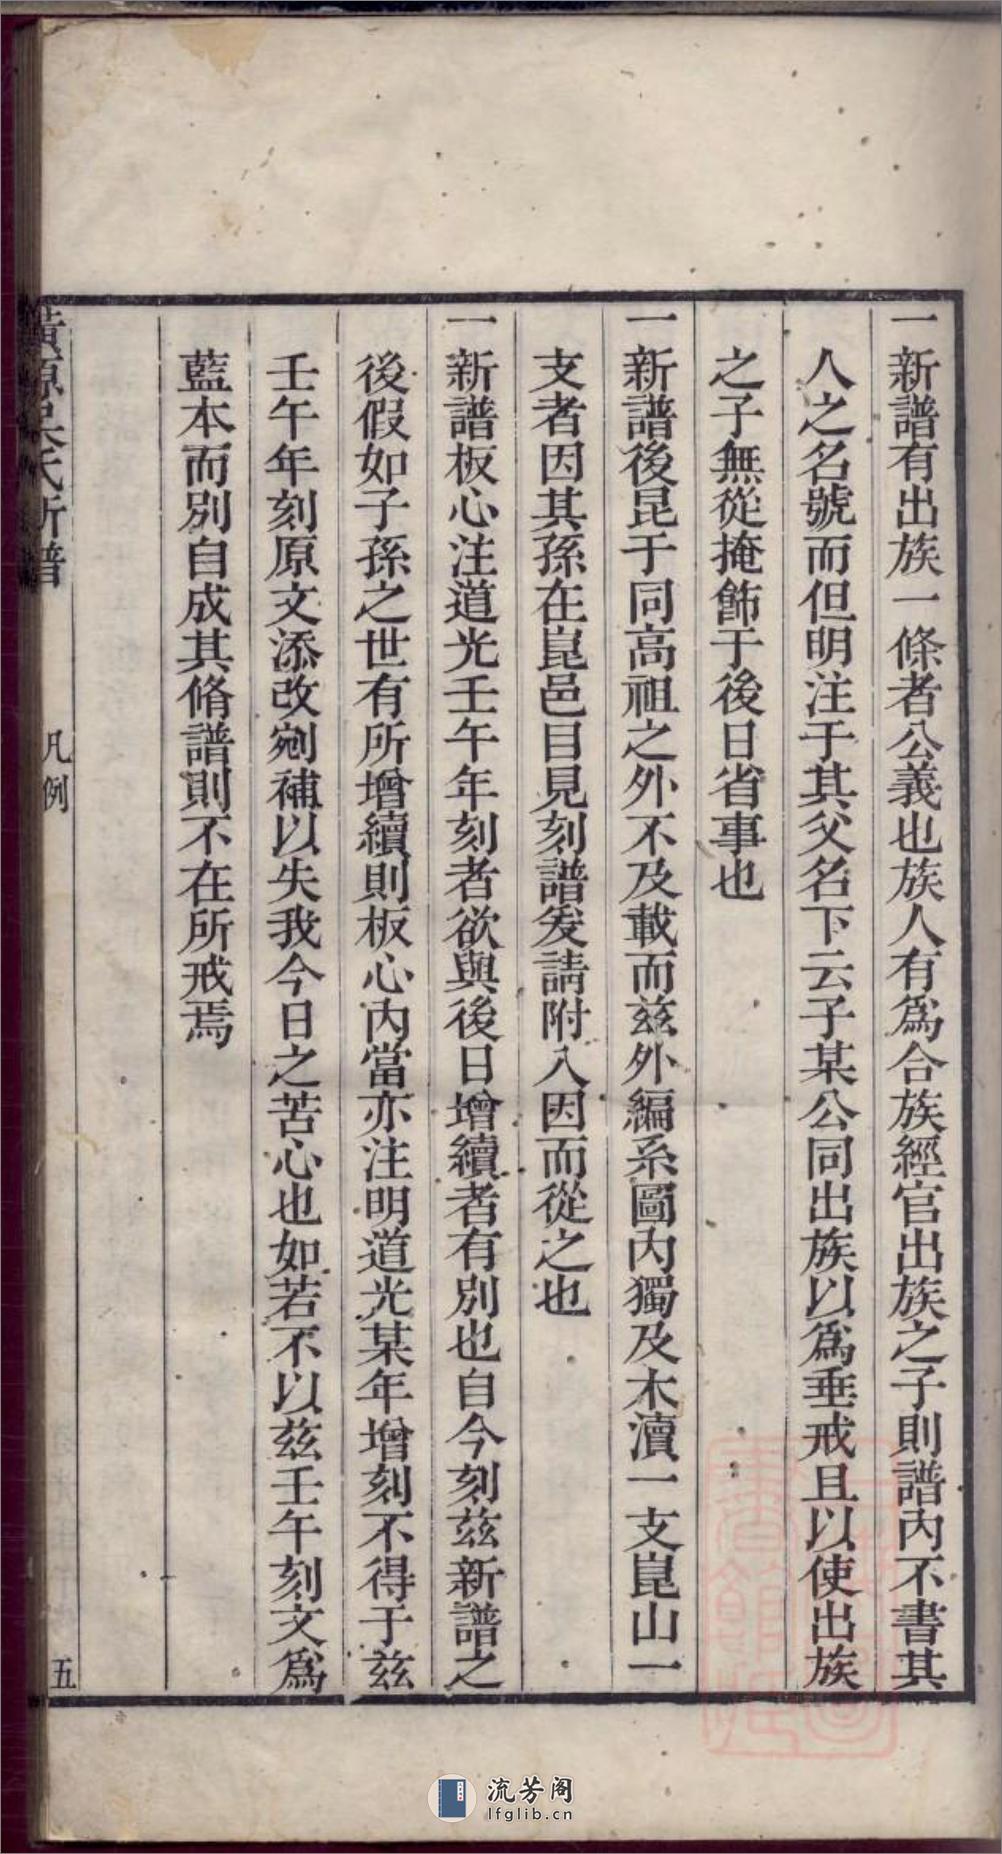 一新譜有出族一條者公義也族人有爲合族經官出族之子則譜內不書其
人之名號而但明注于其父名下云子某公同出族以爲垂戒且以使出族
之子無從掩飾于後日省事也
一新譜後昆于同高祖之外不及載而兹外編系圖內獨及木瀆一支崑山一
支者因其孫在崑邑目見刻譜爰請附入因而從之也
一新譜板心注道光壬午年刻者欲與後日增續者有別也自今刻兹新譜之
後假如子孫之世有所增續則板心內當亦注明道光某年增刻不得于兹
壬午年刻原文添改剜補以失我今日之苦心也如若不以兹壬午刻文爲
藍本而別自成其脩譜則不在所戒焉
氏新譜
凡例
五
流芳阁
lfglib.cn